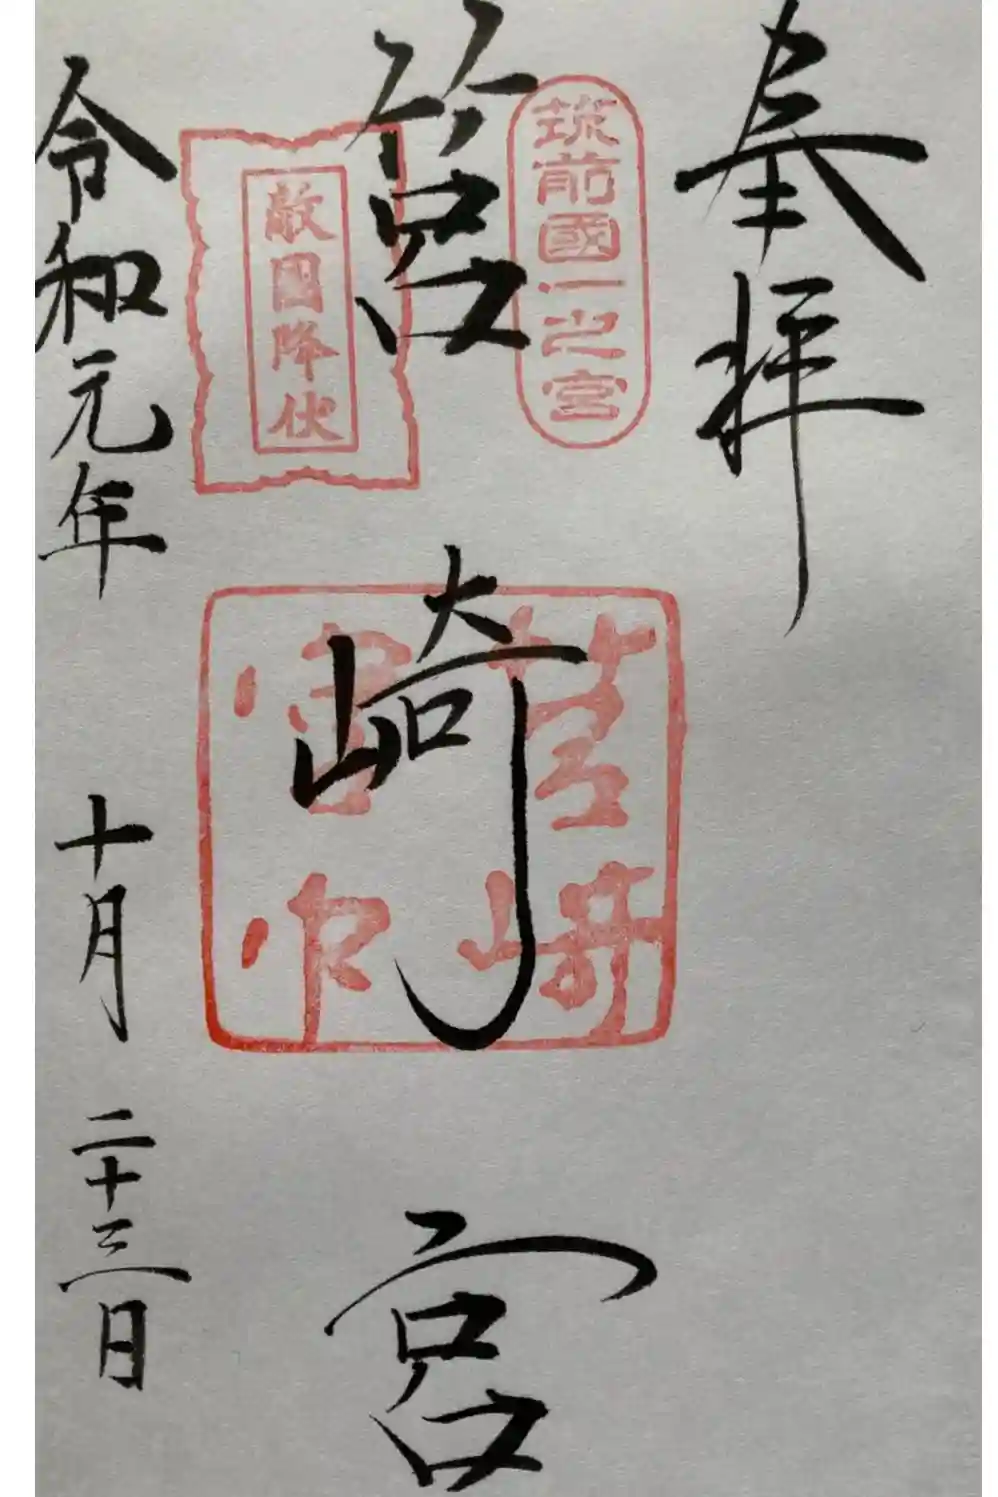 奉拝
筑前國一之宮
筥崎宮
敵国降伏
筥崎
宮印
令和元年十月二十三日